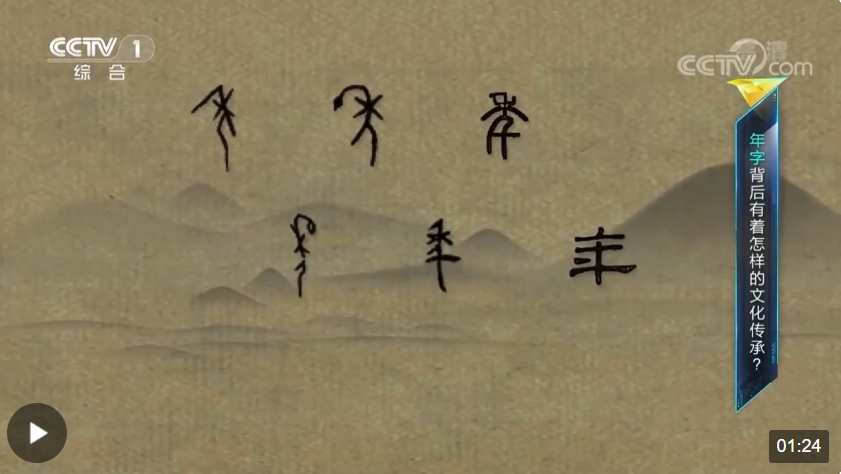 CCTV 1
综合
CCTV.com
高清
年字背后有着怎样的文化传承?
01:24